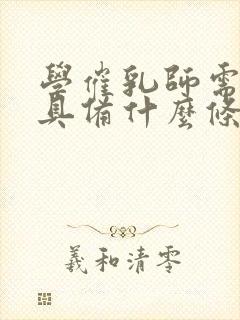 學催乳師需
具備什麼條
羲和清零